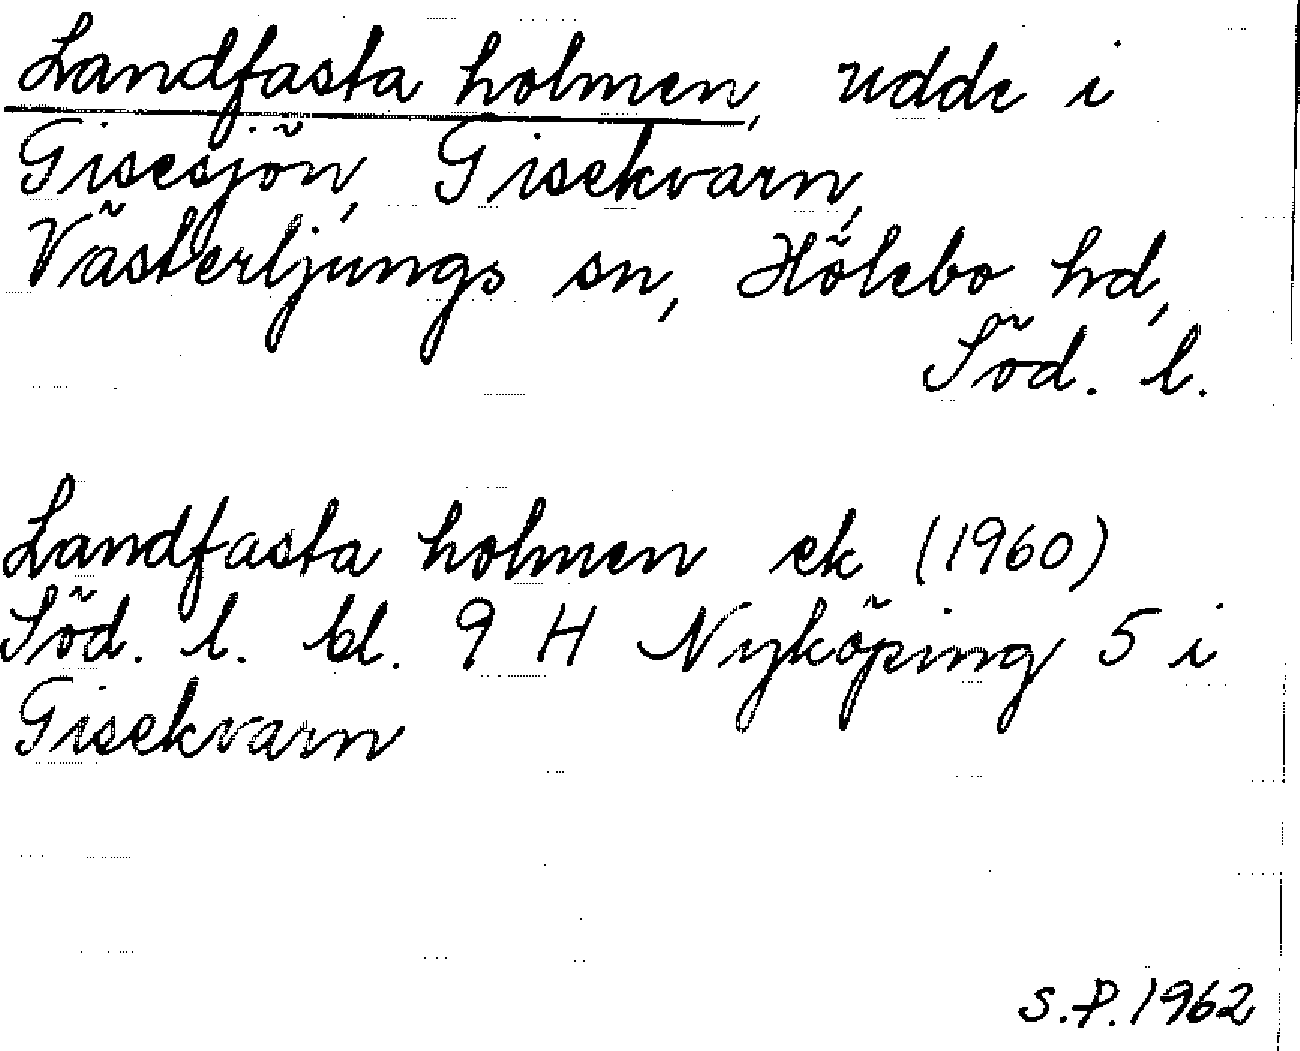 Landfasta holmen, udde i
Gisesjön, Gisekvarn,
Västerljungs sn, Hölebo hd,
Söd. l.
Landfasta holmen ek (1960)
Söd. l. bl. 9 H Nyköping 5 i
Gisekvarn
S.P. 1962